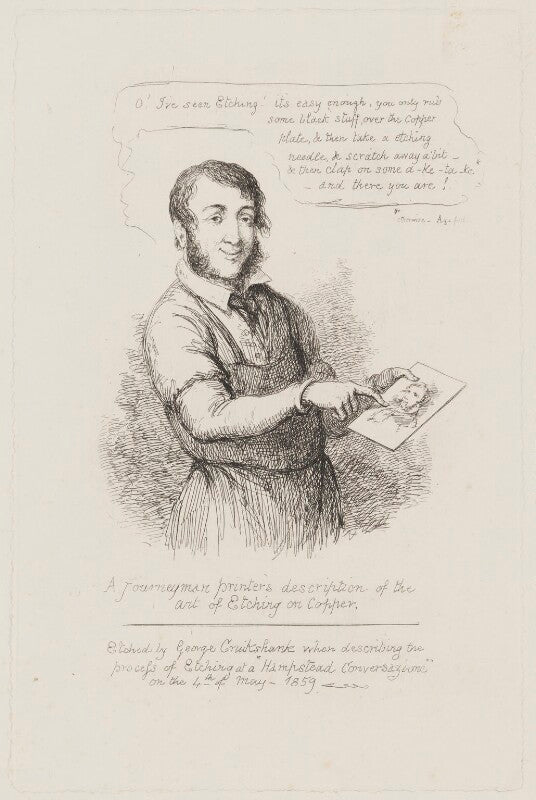 O! I've seen Etching! its easy enough, you only rub
some black stuff, over the Copper
plate, & then take a etching
needle, & scratch away a bit –
& then clap on some a-ke-ta-ke*
– and there you are!
A Journeyman printers description of the
art of Etching on Copper.
Etched by George Cruikshank when describing the
process of Etching at a "Hampstead Conversazione"
on the 4th of May – 1859